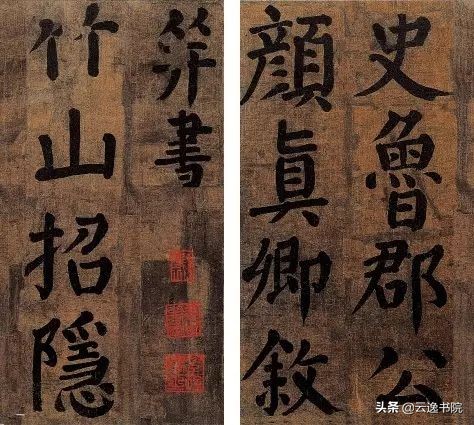 史魯郡公
顔真卿敘
并書
竹山招隱
头条 @云逸书院